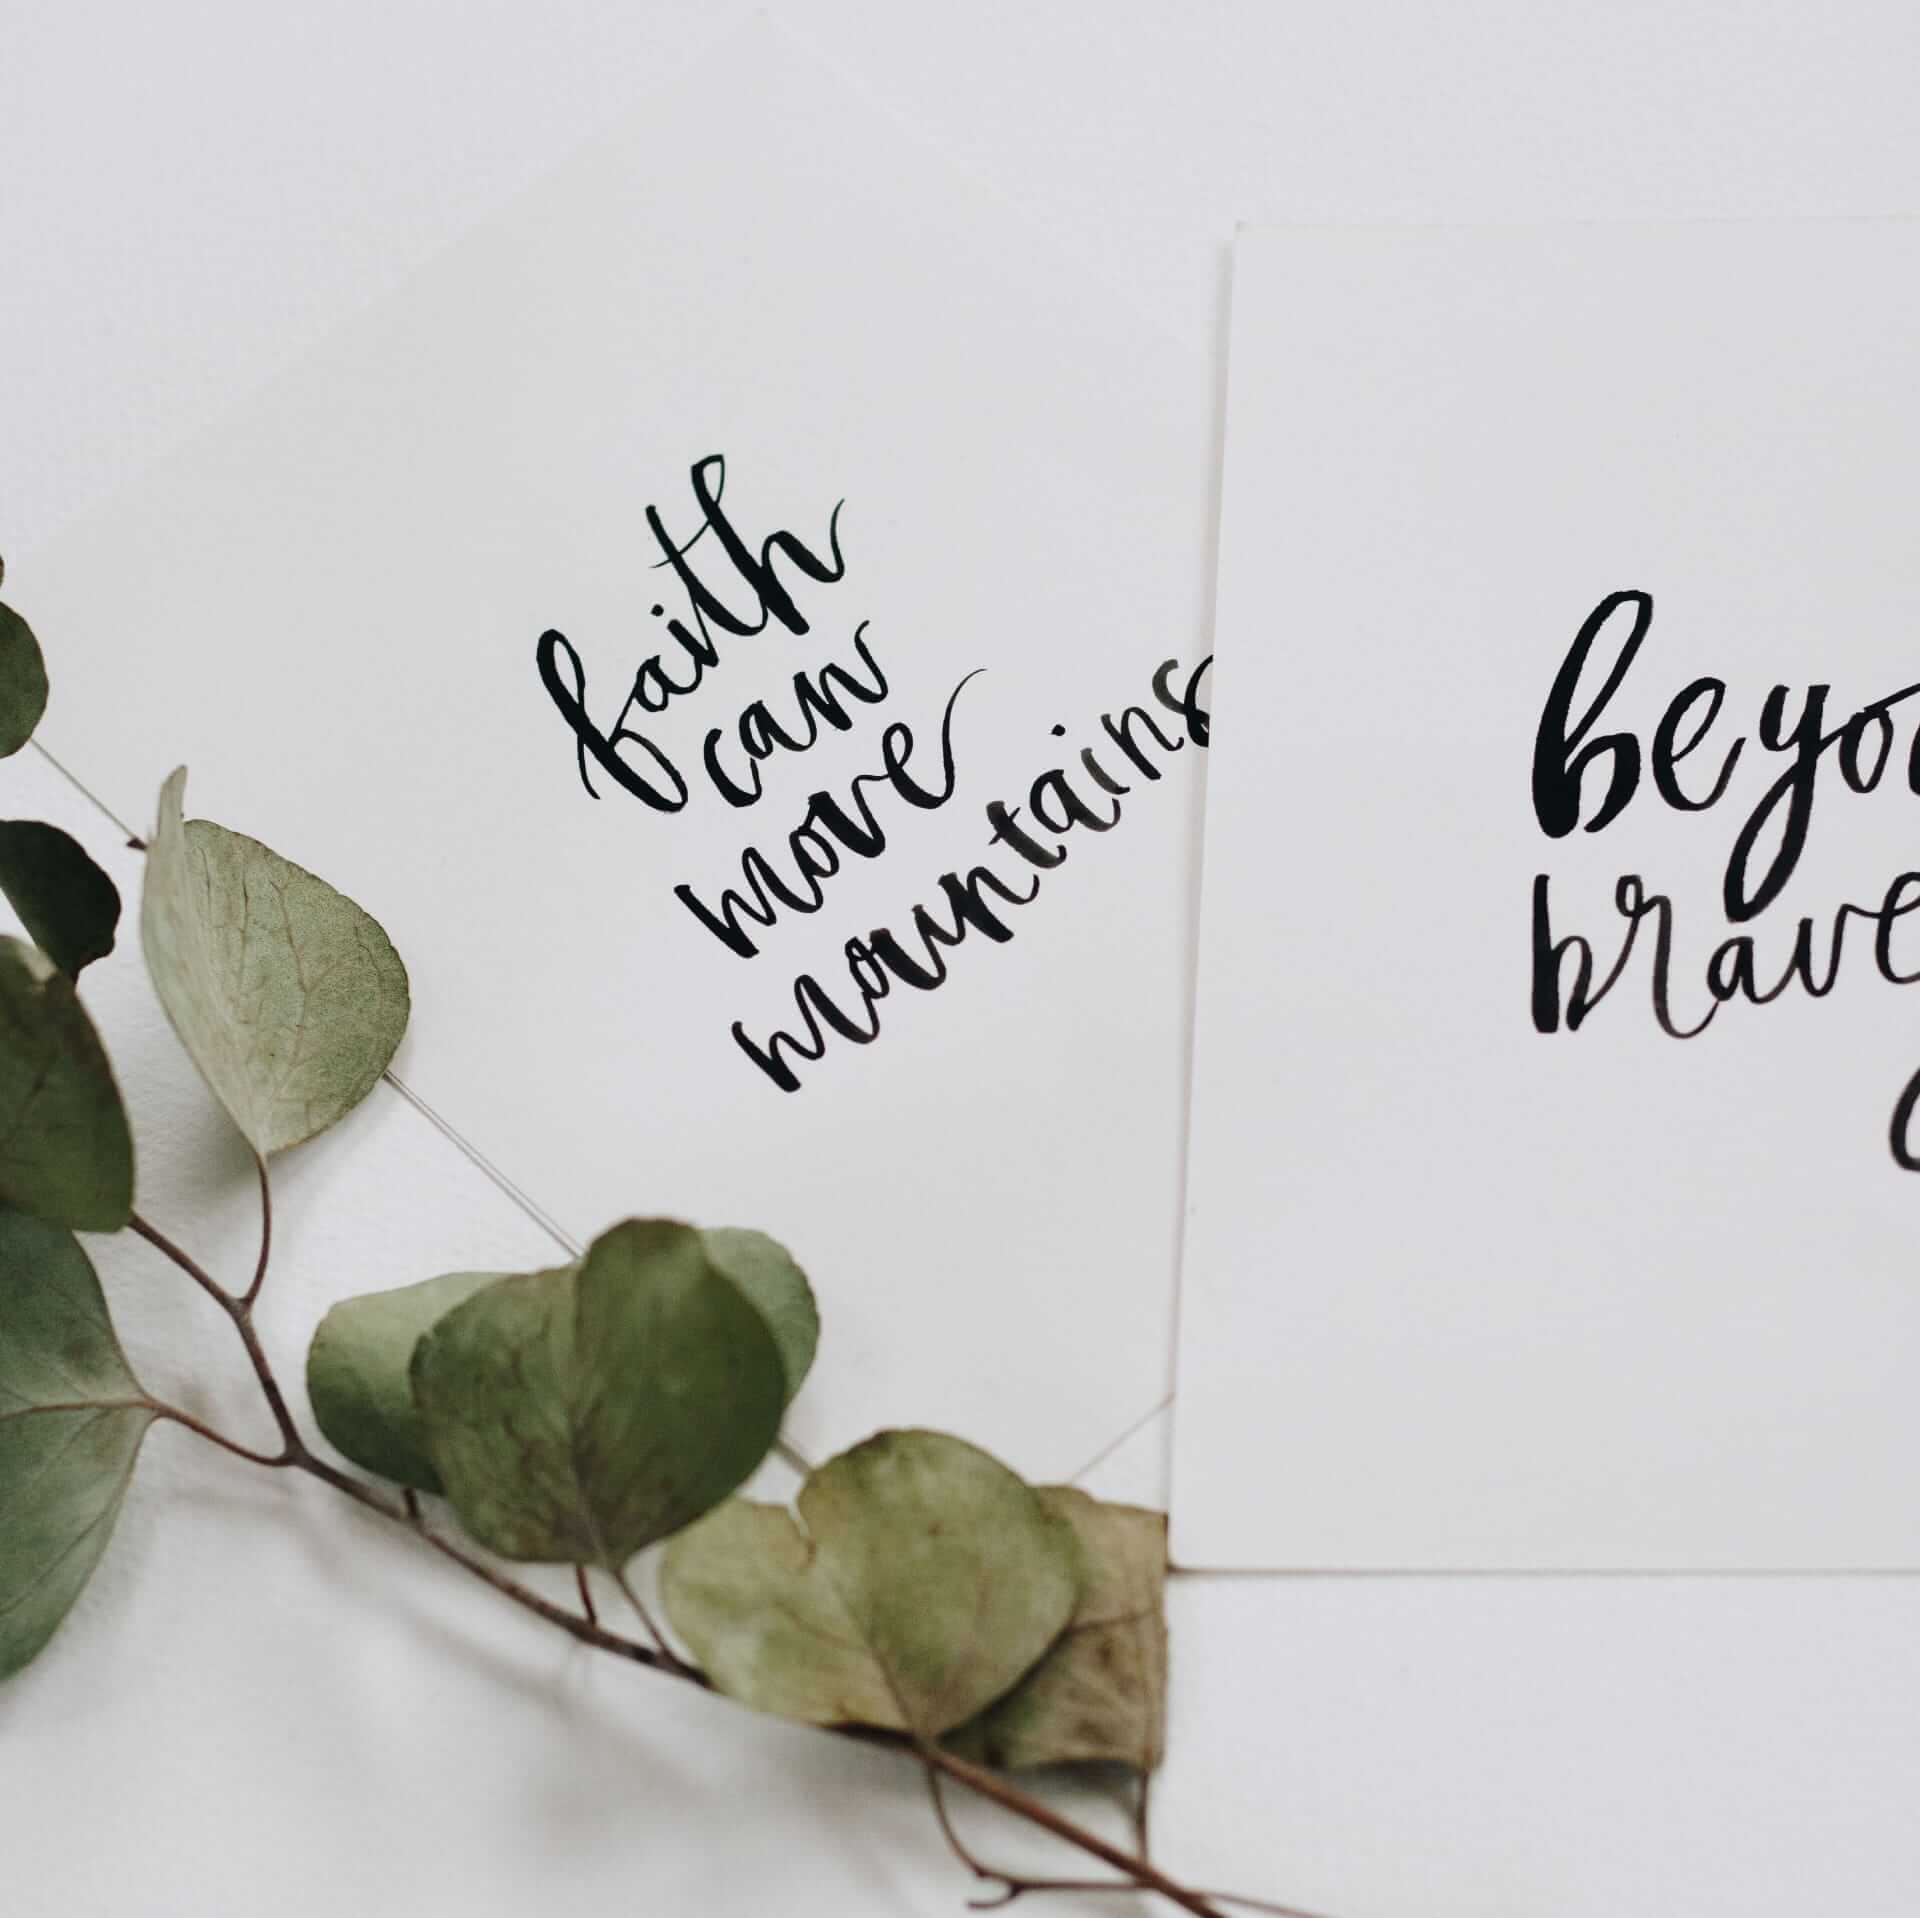 faith
can
move
mountains
be you
brave